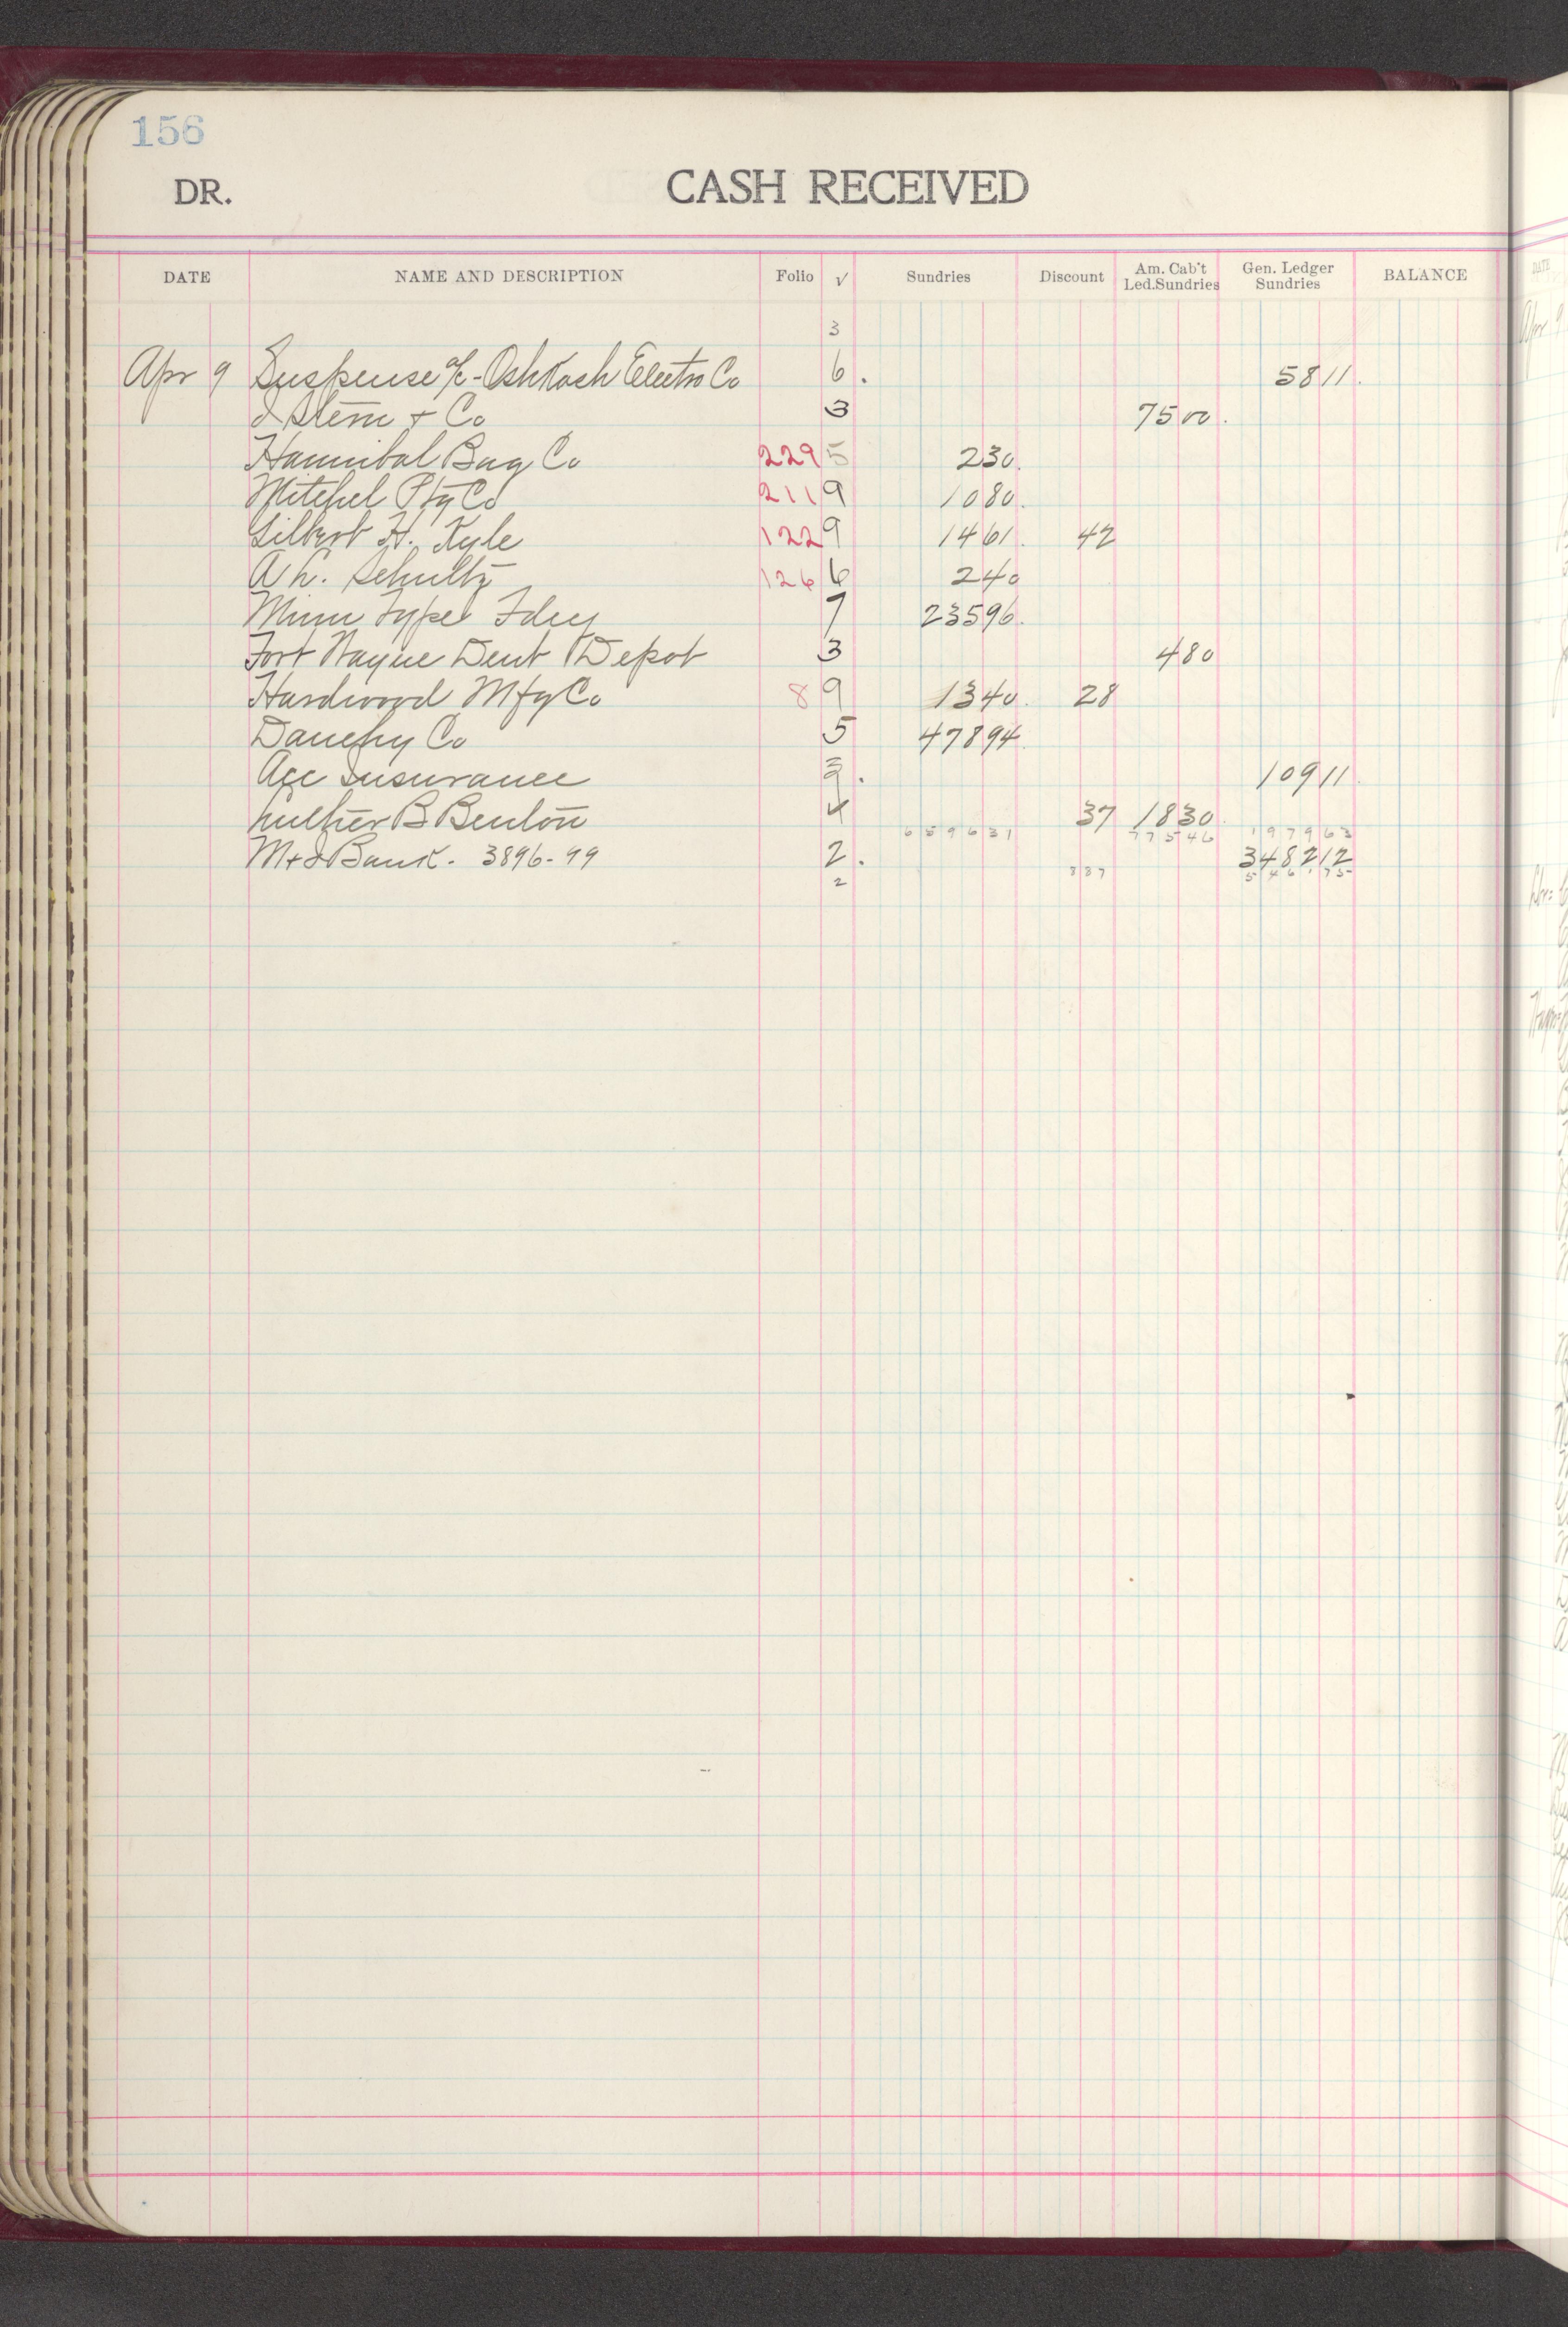 156
DR. CASH RECEIVED
DATE NAME AND DESCRIPTION Folio √ Sundries Discount Am. Cab't Led. Sundries Gen. Ledger Sundries BALANCE
3
Apr 9 Suspense a/c - Oshkosh Electro Co 6. 5811.
I Stern & Co 3 7500.
Hannibal Bag Co 229 5 230.
Mitchel Ptg Co 211 9 1080.
Gilbert H. Kyle 122 9 1461. 42
A L. Schultz 126 6 240
Minn Type Fdry 7 23596.
Fort Wayne Dent Depot 3 480
Hardwood Mfg Co 8 9 1340. 28
Dauchy Co 5 47894.
Acc Insurance 3. 10911.
Luther B Benton 4 37 1830.
659631 77546 197963
M+I Bank. 3896-99 2. 348212
2 337 546175